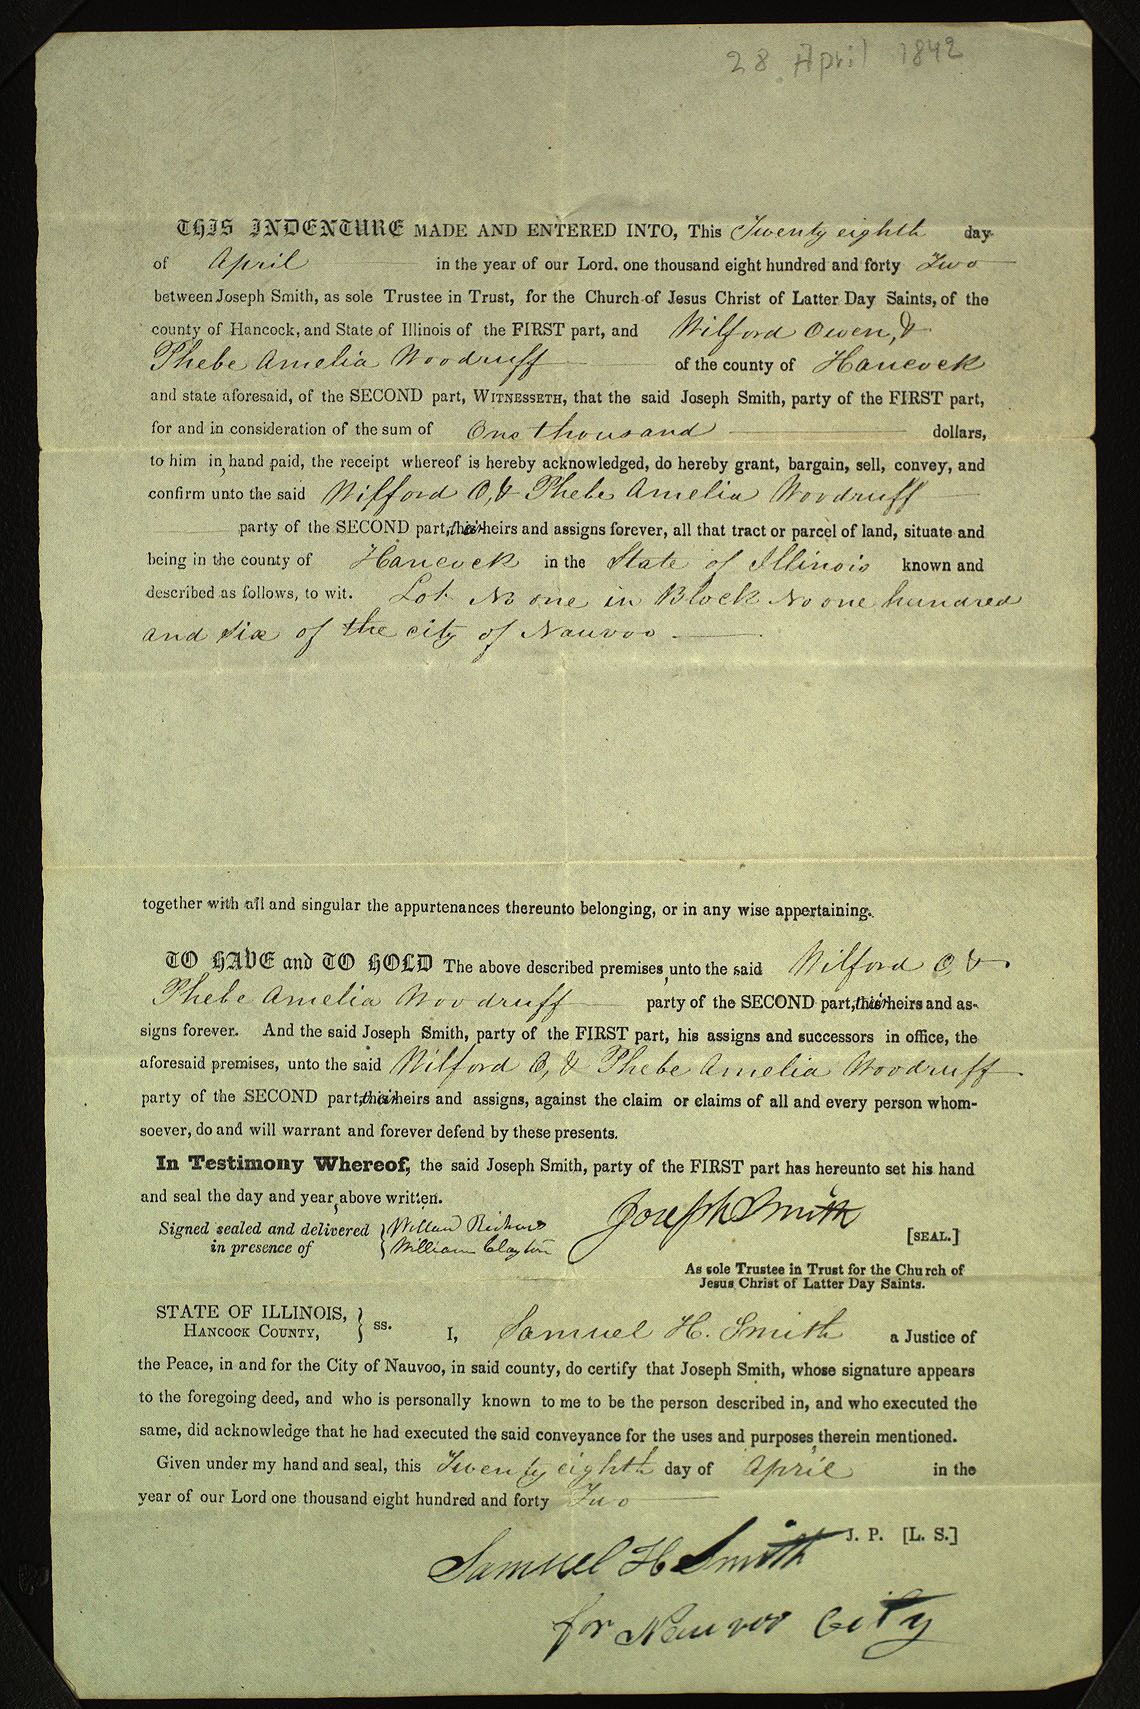 28 April 1842
THIS INDENTURE MADE AND ENTERED INTO, This Twenty eighth day
of April in the year of our Lord, one thousand eight hundred and forty Two
between Joseph Smith, as sole Trustee in Trust, for the Church of Jesus Christ of Latter Day Saints, of the
county of Hancock, and State of Illinois of the FIRST part, and Wilford Owen, &
Phebe Amelia Woodruff of the county of Hancock
and state aforesaid, of the SECOND part, WITNESSETH, that the said Joseph Smith, party of the FIRST part,
for and in consideration of the sum of One thousand dollars,
to him in hand paid, the receipt whereof is hereby acknowledged, do hereby grant, bargain, sell, convey, and
confirm unto the said Wilford O, & Phebe Amelia Woodruff
party of the SECOND part, their heirs and assigns forever, all that tract or parcel of land, situate and
being in the county of Hancock in the State of Illinois known and
described as follows, to wit. Lot No one in Block No one hundred
and six of the city of Nauvoo
together with all and singular the appurtenances thereunto belonging, or in any wise appertaining.
TO HAVE and TO HOLD The above described premises, unto the said Wilford O, &
Phebe Amelia Woodruff party of the SECOND part, their heirs and as-
signs forever. And the said Joseph Smith, party of the FIRST part, his assigns and successors in office, the
aforesaid premises, unto the said Wilford O, & Phebe Amelia Woodruff
party of the SECOND part, their heirs and assigns, against the claim or claims of all and every person whom-
soever, do and will warrant and forever defend by these presents.
In Testimony Whereof, the said Joseph Smith, party of the FIRST part has hereunto set his hand
and seal the day and year above written.
Signed sealed and delivered Willard Richards Joseph Smith
in presence of William Clayton [SEAL.]
As sole Trustee in Trust for the Church of
Jesus Christ of Latter Day Saints.
STATE OF ILLINOIS,
HANCOCK COUNTY, ss. I, Samuel H. Smith a Justice of
the Peace, in and for the City of Nauvoo, in said county, do certify that Joseph Smith, whose signature appears
to the foregoing deed, and who is personally known to me to be the person described in, and who executed the
same, did acknowledge that he had executed the said conveyance for the uses and purposes therein mentioned.
Given under my hand and seal, this Twenty eighth day of April in the
year of our Lord one thousand eight hundred and forty Two
J. P. [L. S.]
Samuel H Smith
for Nauvoo City